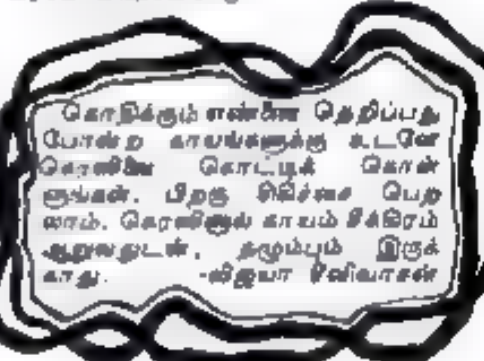 கொதிக்கும் எண்ணெய் தெறிப்பது
போன்ற காயங்களுக்கு உடனே
தேனை கொட்டிக் கொள்
ளுங்கள். பிறகு சிகிச்சை பெற
லாம். காயம் சீக்கிரம்
ஆறுவதுடன், தழும்பும் இருக்
காது. -விஜயா சீனிவாசன்